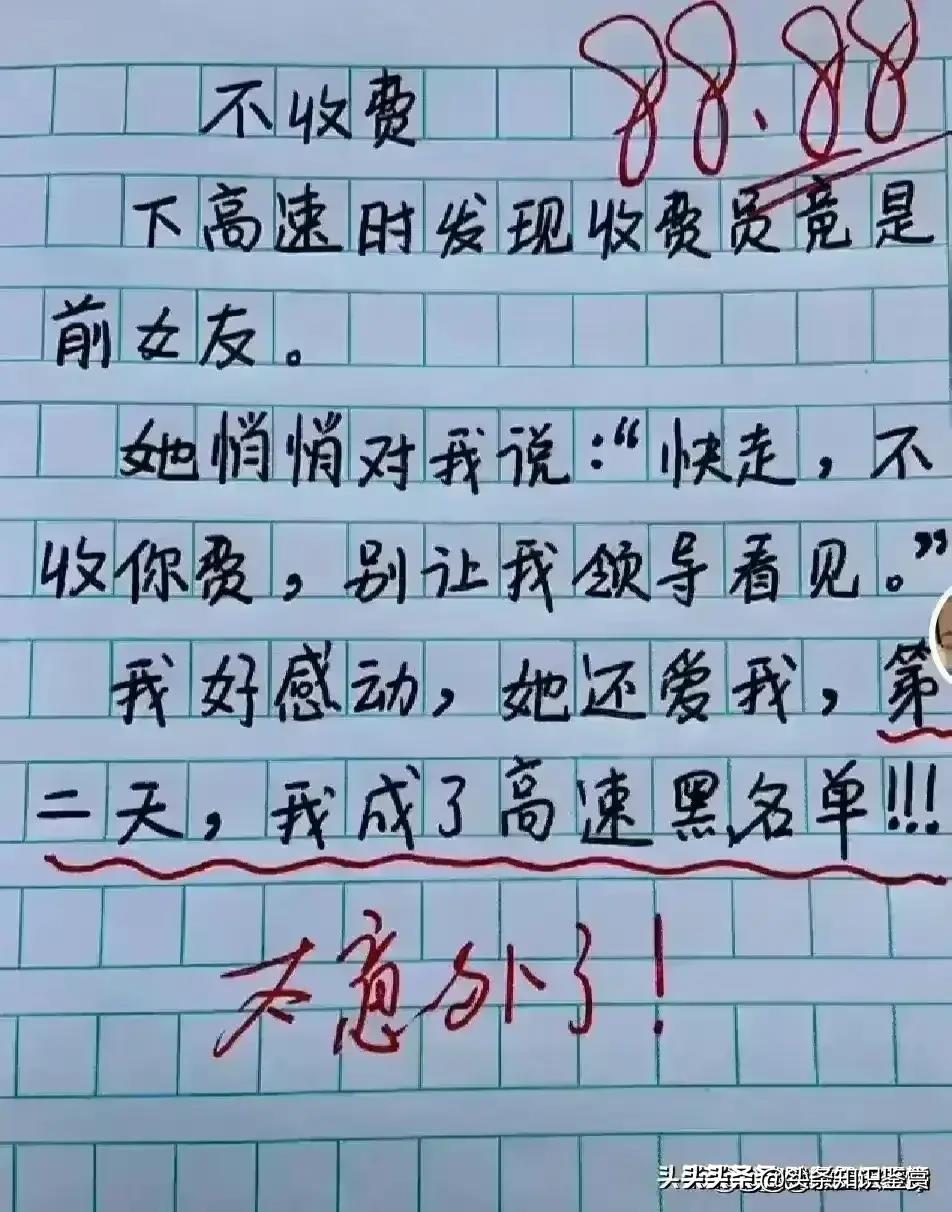 不收费
88.88
下高速时发现收费员竟是
前女友。
她悄悄对我说:“快走,不
收你费,别让我领导看见。”
我好感动,她还爱我,第
二天,我成了高速黑名单!!!
太意外了!
@头条知识鉴赏